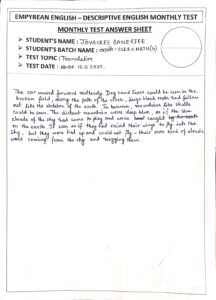 EMPYREAN ENGLISH – DESCRIPTIVE ENGLISH MONTHLY TEST
MONTHLY TEST ANSWER SHEET
➢ STUDENT'S NAME : JAYASREE BANERJEE
➢ STUDENT'S BATCH NAME :
➢ TEST TOPIC : Translation
➢ TEST DATE :
The car moved forward restlessly. Dry and land could be seen in the
broken field, along the path of the river, large black rocks had fallen
out like the skeleton of the earth. In between, mountains like skulls
could be seen. The distant mountains were deep blue, as if the blue
clouds of the sky had come to play and were caught
on the earth. It was as if they had mind their wings to fly into the
sky, but they were tied up and could not fly - their own kind of clouds
were coming from the sky and hugging them.